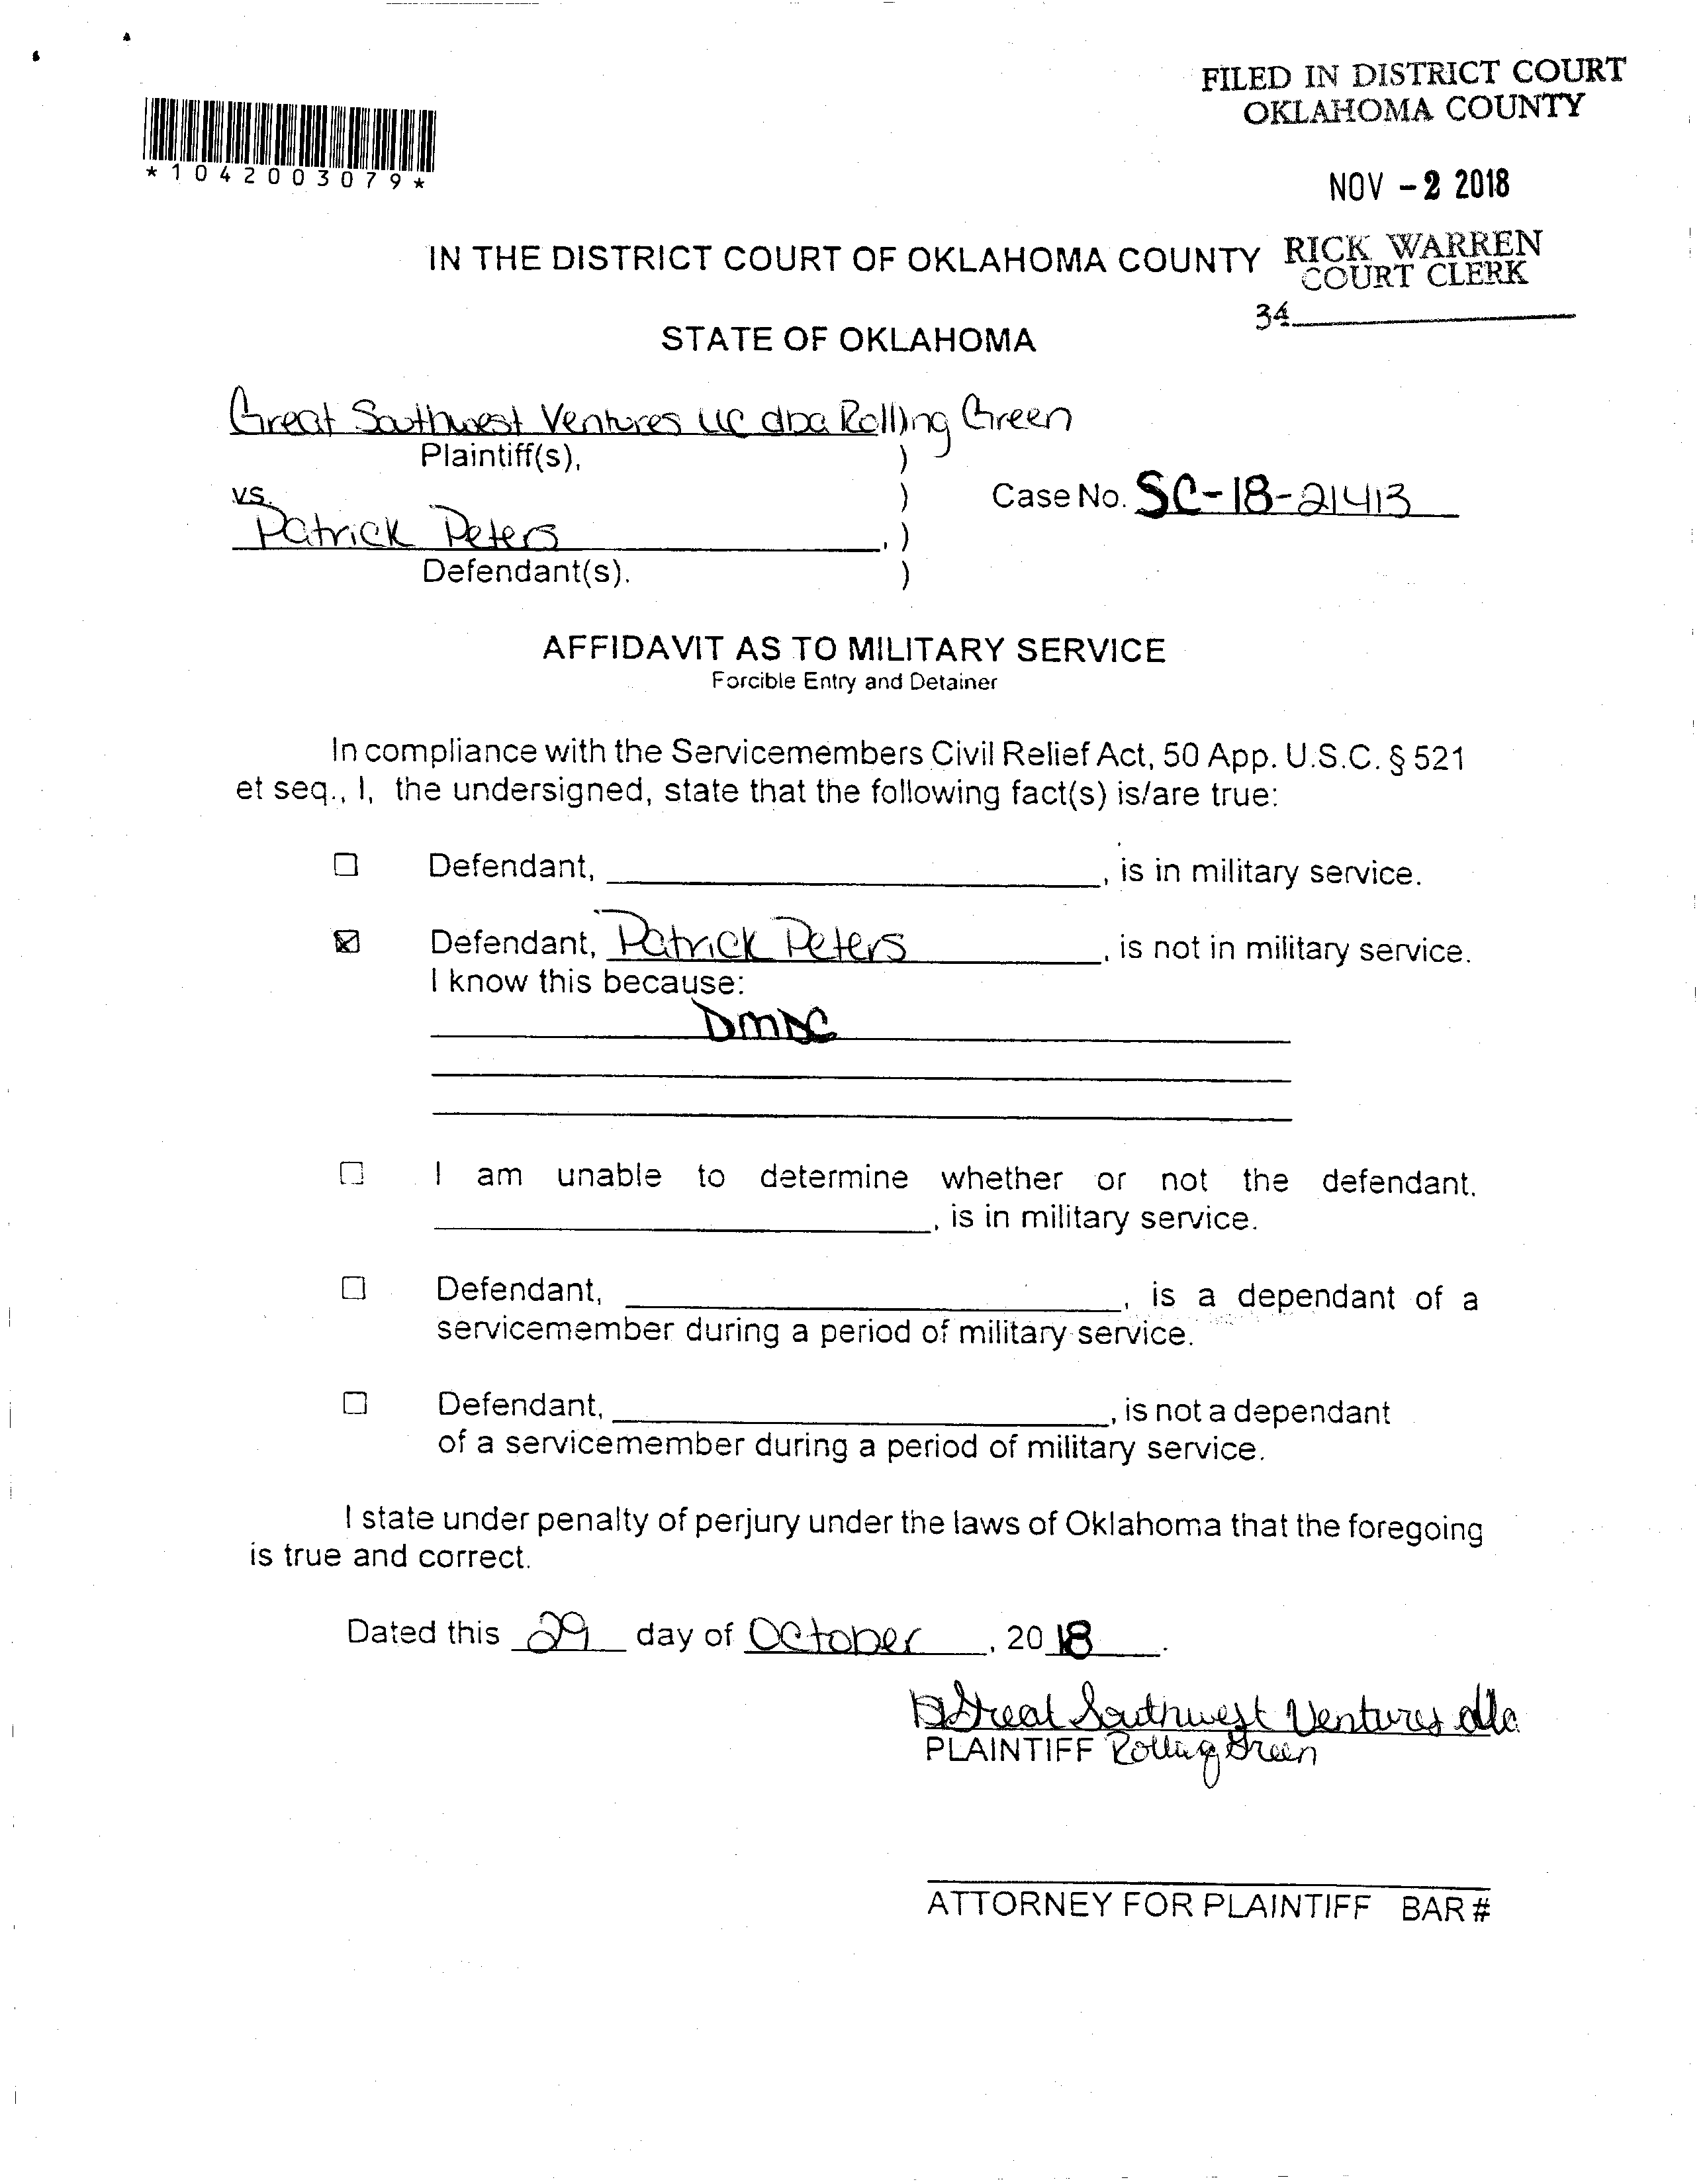 FILED IN DISTRICT COURT
OKLAHOMA COUNTY
*1042003079*
NOV -2 2018
RICK WARREN
COURT CLERK
34
IN THE DISTRICT COURT OF OKLAHOMA COUNTY
STATE OF OKLAHOMA
Great Southwest Ventures LLC dba Rolling Green
Plaintiff(s), )
vs. ) Case No. SC-18-21413
Patrick Peters , )
Defendant(s). )
AFFIDAVIT AS TO MILITARY SERVICE
Forcible Entry and Detainer
In compliance with the Servicemembers Civil Relief Act, 50 App. U.S.C. § 521
et seq., I, the undersigned, state that the following fact(s) is/are true:
☐ Defendant, , is in military service.
☒ Defendant, Patrick Peters , is not in military service.
I know this because:
DMDC
☐ I am unable to determine whether or not the defendant.
, is in military service.
☐ Defendant, , is a dependant of a
servicemember during a period of military service.
☐ Defendant, , is not a dependant
of a servicemember during a period of military service.
I state under penalty of perjury under the laws of Oklahoma that the foregoing
is true and correct.
Dated this 29 day of October , 2018 .
Great Southwest Ventures dba
PLAINTIFF Rolling Green
ATTORNEY FOR PLAINTIFF BAR #